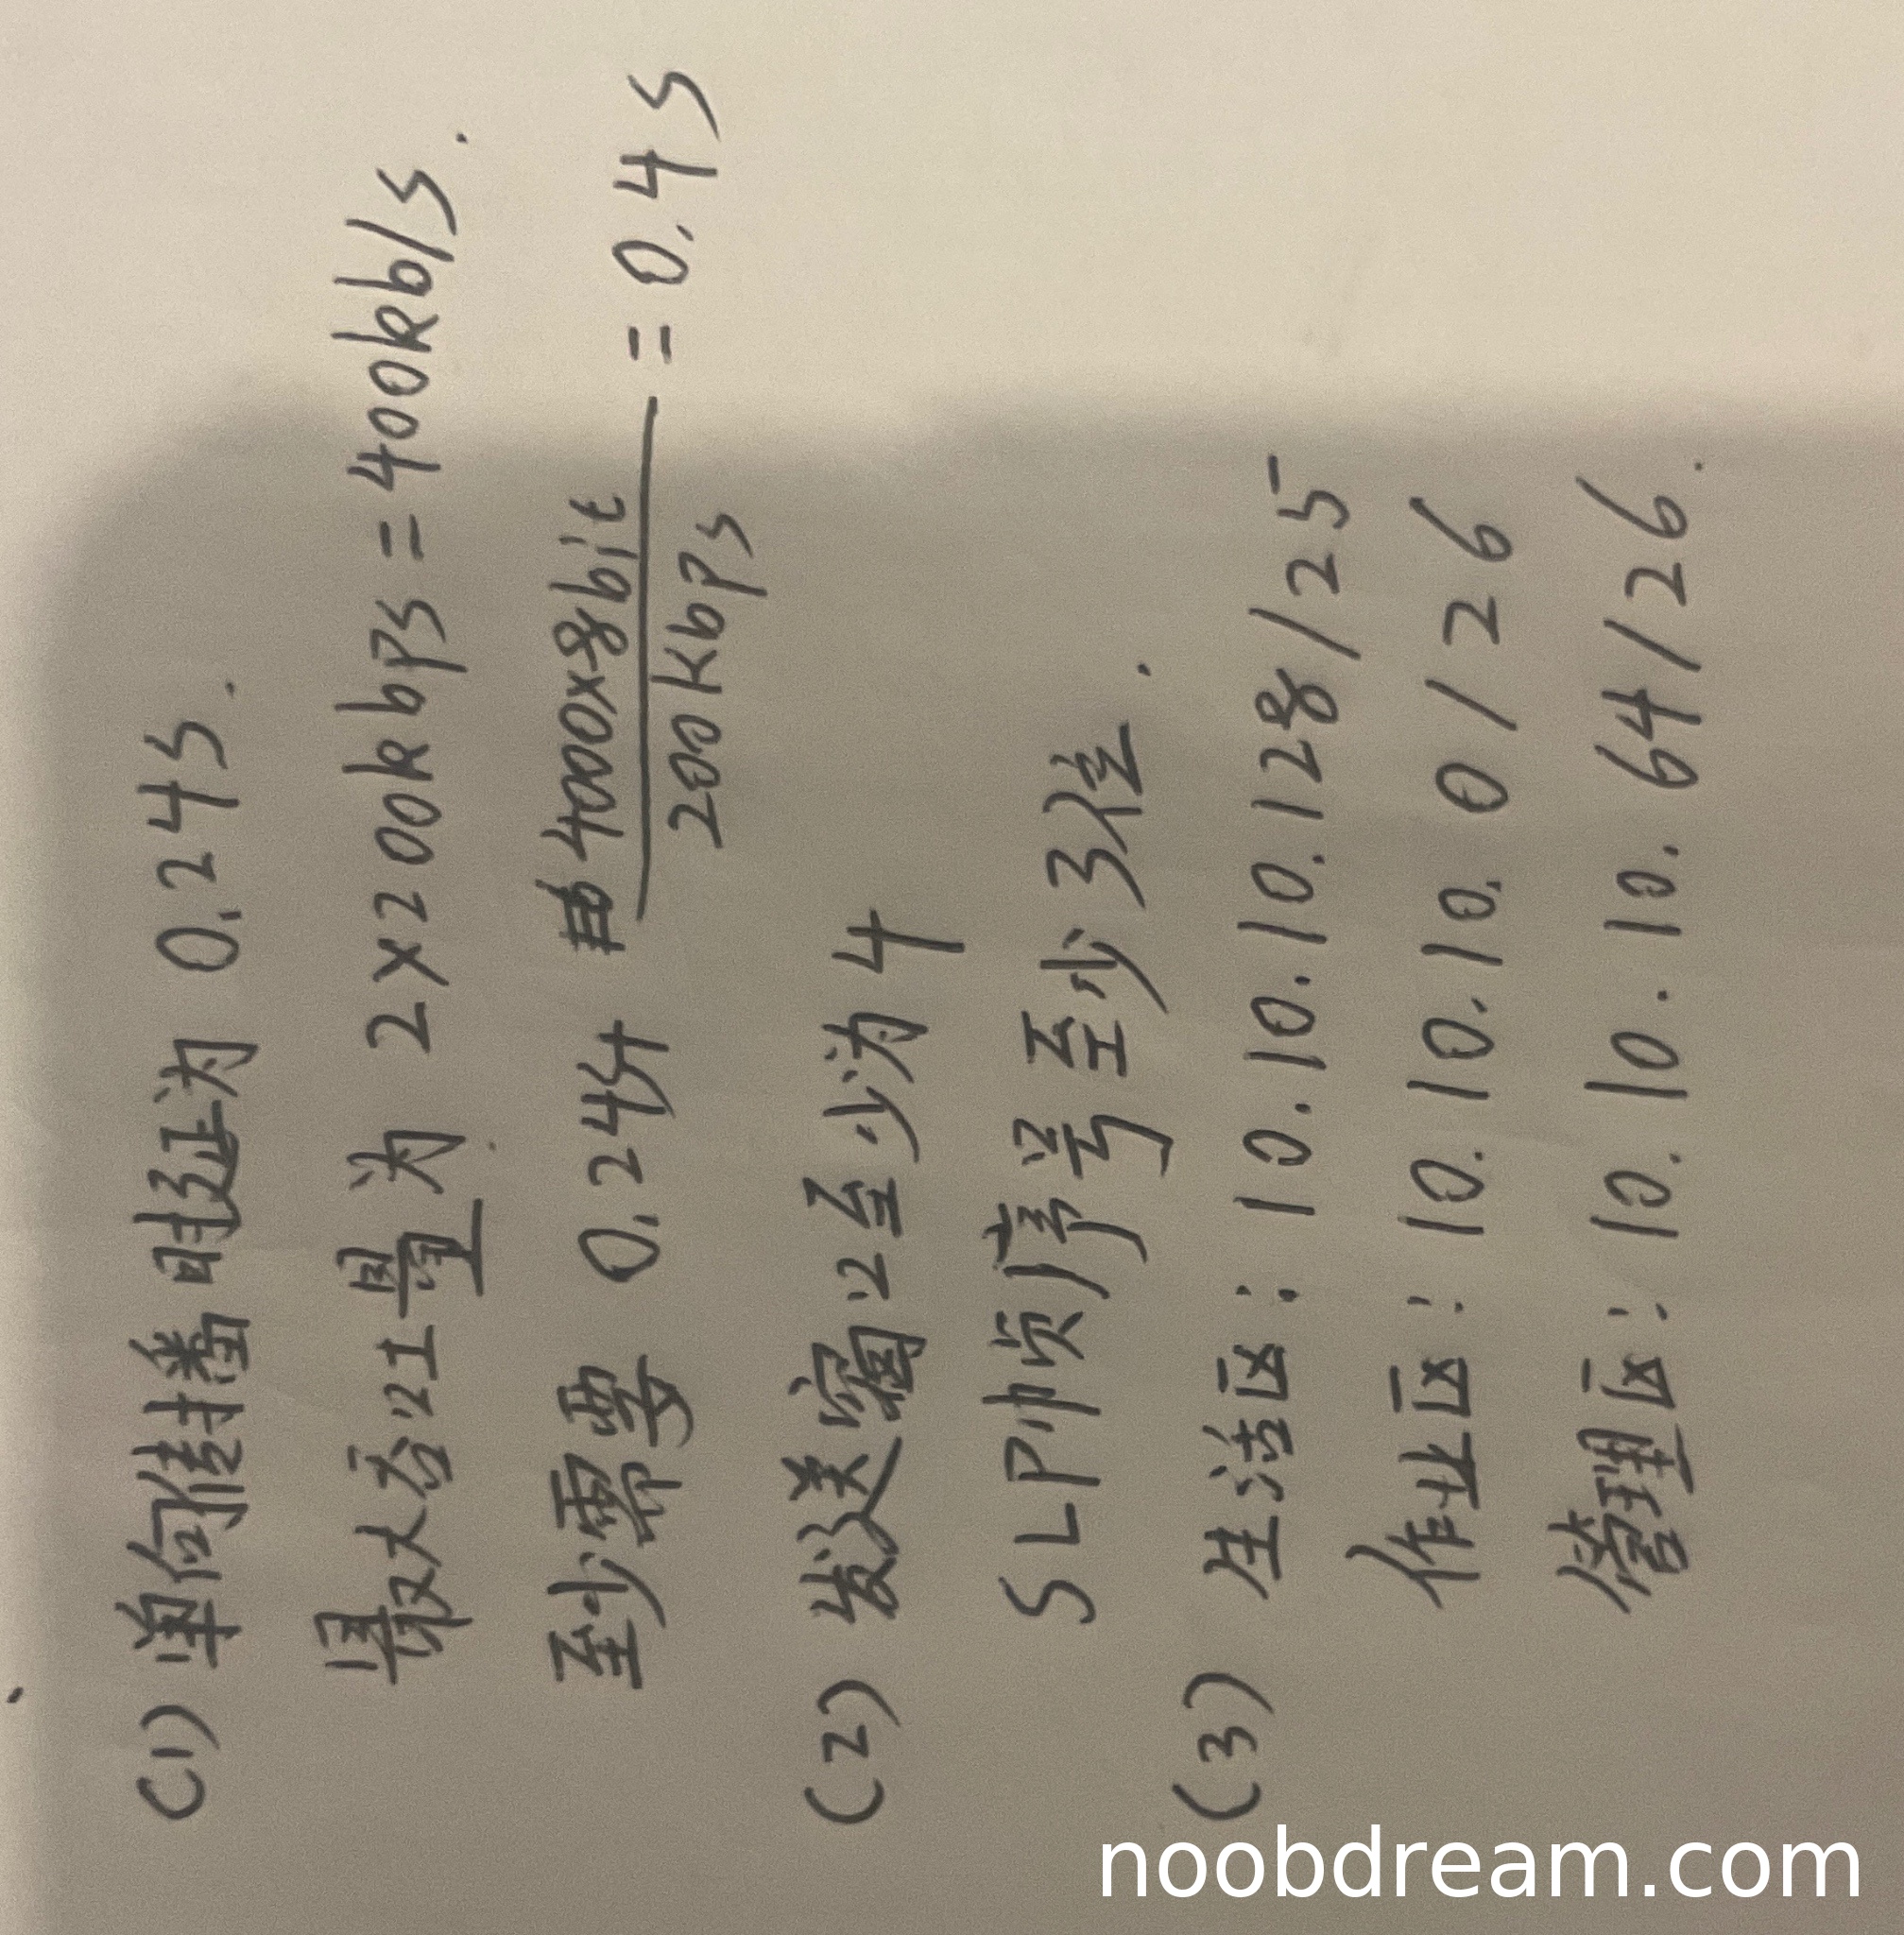 (1) 单向传播时延为 0.24s.
最大吞吐量为 2×200kbps=400kb/s.
至少需要 0.24s+ 4000×8bit/200kbps =0.4s
(2) 发送窗口至少为4
SLP帧序号至少3位.
(3) 生活区: 10.10.10.128/25
作业区: 10.10.10.0/26
管理区: 10.10.10.64/26.
noobdream.com